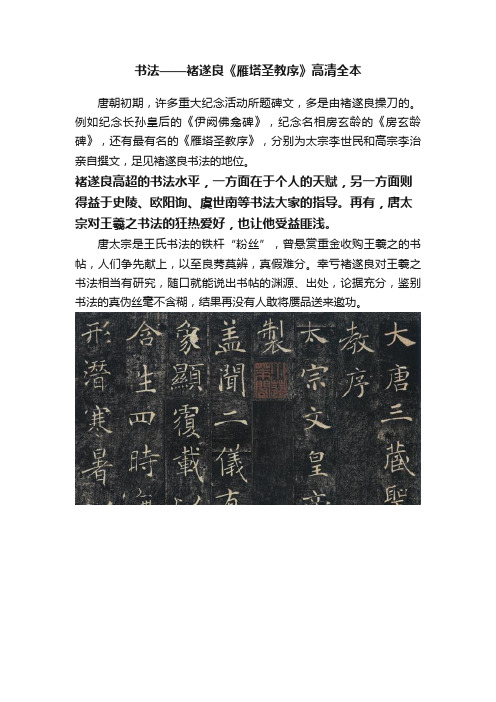 书法——褚遂良《雁塔圣教序》高清全本
唐朝初期，许多重大纪念活动所题碑文，多是由褚遂良操刀的。
例如纪念长孙皇后的《伊阙佛龛碑》，纪念名相房玄龄的《房玄龄
碑》，还有最有名的《雁塔圣教序》，分别为太宗李世民和高宗李治
亲自撰文，足见褚遂良书法的地位。
褚遂良高超的书法水平，一方面在于个人的天赋，另一方面则
得益于史陵、欧阳询、虞世南等书法大家的指导。再有，唐太
宗对王羲之书法的狂热爱好，也让他受益匪浅。
唐太宗是王氏书法的铁杆“粉丝”，曾悬赏重金收购王羲之的书
帖，人们争先献上，以至良莠莫辨，真假难分。幸亏褚遂良对王羲之
书法相当有研究，随口就能说出书帖的渊源、出处，论据充分，鉴别
书法的真伪丝毫不含糊，结果再没有人敢将赝品送来邀功。
大唐三藏聖
教序
太宗文皇帝
製
盖聞二儀有
象顯覆載以
含生四時無
形潛寒暑